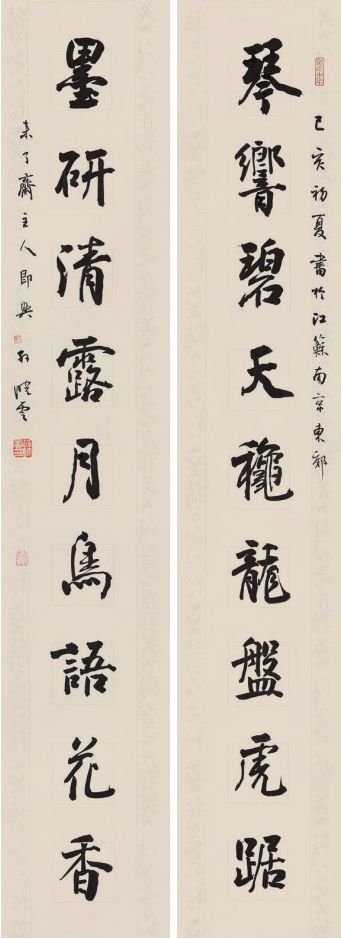 己亥初夏書於江蘇南京東郊
琴響碧天穐龍盤虎踞
墨研清露月鳥語花香
未了齋主人即興孫曉雲